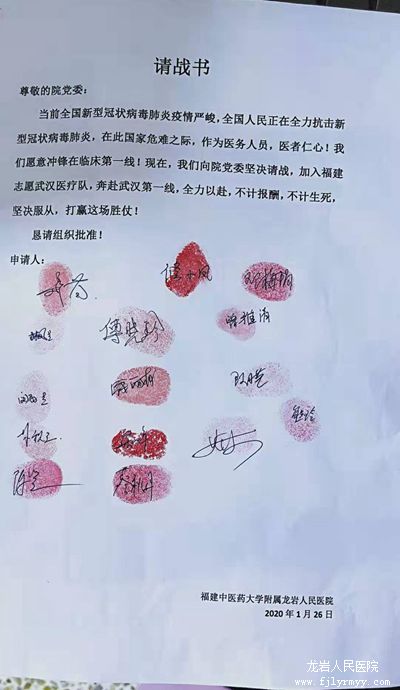 请战书
尊敬的院党委：
当前全国新型冠状病毒肺炎疫情严峻，全国人民正在全力抗击新
型冠状病毒肺炎，在此国家危难之际，作为医务人员，医者仁心！我
们愿意冲锋在临床第一线！现在，我们向院党委坚决请战，加入福建
志愿武汉医疗队，奔赴武汉第一线，全力以赴，不计报酬，不计生死，
坚决服从，打赢这场胜仗！
恳请组织批准！
申请人：
福建中医药大学附属龙岩人民医院
2020年1月26日
龙岩人民医院
www.fjlyrmyy.com